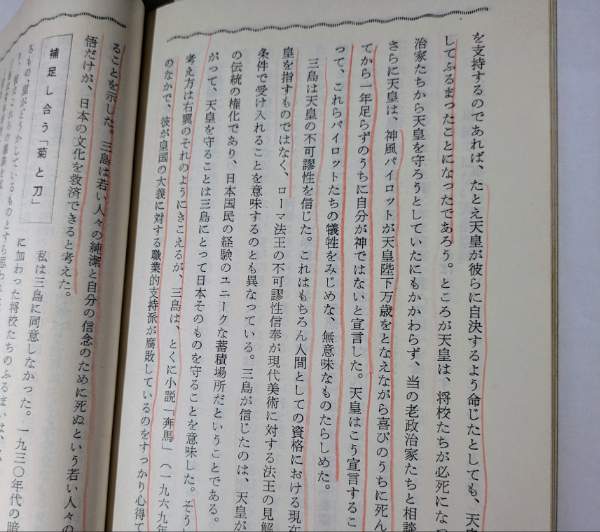 を支持するのであれば、たとえ天皇が彼らに自決するよう命じたとしても、天
してふるまったことになったであろう。ところが天皇は、将校たちが必死になっ
治家たちから天皇を守ろうとしていたにもかかわらず、当の老政治家たちと相談
さらに天皇は、神風パイロットが天皇陛下万歳をとなえながら喜びのうちに死ん
てから一年足らずのうちに自分が神ではないと宣言した。天皇はこう宣言するこ
って、これらパイロットたちの犠牲をみじめな、無意味なものたらしめた。
三島は天皇の不可謬性を信じた。これはもちろん人間としての資格における現在
皇を指すものではなく、ローマ法王の不可謬性信奉が現代美術に対する法王の見解
条件で受け入れることを意味するのとも異なっている。三島が信じたのは、天皇が
の伝統の権化であり、日本国民の経験のユニークな蓄積場所だということである。
がって、天皇を守ることは三島にとって日本そのものを守ることを意味した。そう
考え方は右翼のそれのようにきこえるが、三島は、とくに小説「奔馬」（一九六九年
のなかで、彼が皇国の大義に対する職業的支持派が腐敗しているのをすっかり心得て
ることを示した。三島は若い人々の純潔と自分の信念のために死ぬという若い人々の
悟だけが、日本の文化を救済できると考えた。
補足し合う「菊と刀」
私は三島に同意しなかった。一九三〇年代の暗
に加わった将校たちのふるまいは、